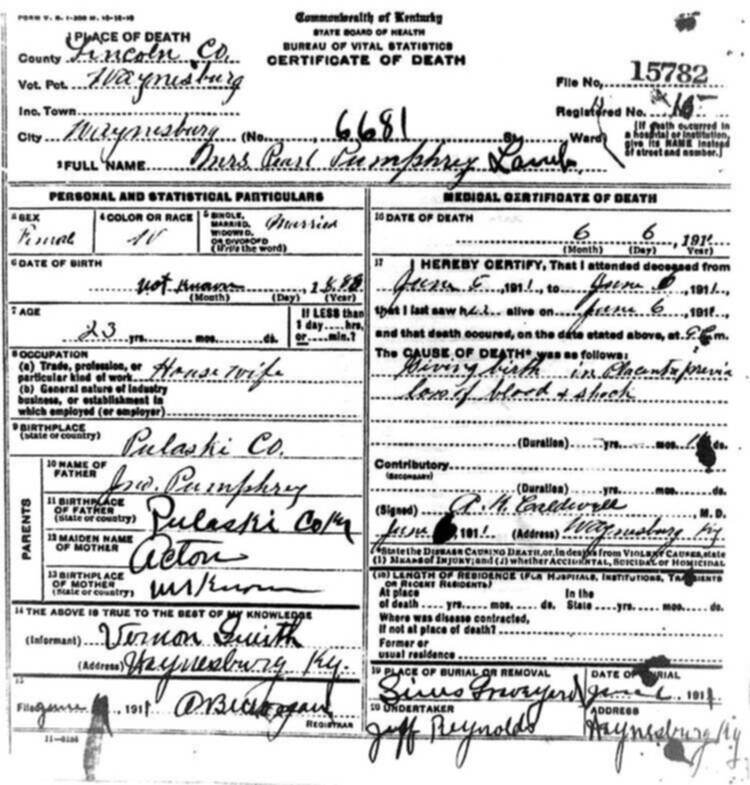 FORM V. S. 1-200 M. 10-15-10
Commonwealth of Kentucky
STATE BOARD OF HEALTH
BUREAU OF VITAL STATISTICS
CERTIFICATE OF DEATH
1 PLACE OF DEATH
County Lincoln Co.
Vot. Pct. Waynesburg
Inc. Town
City Waynesburg (No. 6681 St. Ward)
File No. 15782
Registered No. 16
[If death occurred in a hospital or institution, give its NAME instead of street and number.]
2 FULL NAME Mrs. Pearl Pumphrey Lamb
PERSONAL AND STATISTICAL PARTICULARS
3 SEX
Female
4 COLOR OR RACE
W
5 SINGLE, MARRIED, WIDOWED, OR DIVORCED (Write the word)
Married
6 DATE OF BIRTH
not known 1888
(Month) (Day) (Year)
7 AGE
23 yrs. mos. ds.
If LESS than 1 day hrs. or min.?
8 OCCUPATION
(a) Trade, profession, or particular kind of work House wife
(b) General nature of industry business, or establishment in which employed (or employer)
9 BIRTHPLACE
(State or country)
Pulaski Co.
PARENTS
10 NAME OF FATHER
Jno. Pumphrey
11 BIRTHPLACE OF FATHER
(State or country) Pulaski Co Ky
12 MAIDEN NAME OF MOTHER
Acton
13 BIRTHPLACE OF MOTHER
(State or country) unknown
14 THE ABOVE IS TRUE TO THE BEST OF MY KNOWLEDGE
(Informant) Vernon Smith
(Address) Waynesburg Ky.
15
Filed June 1911
REGISTRAR
11-6184
MEDICAL CERTIFICATE OF DEATH
16 DATE OF DEATH
6 6 1911
(Month) (Day) (Year)
17 I HEREBY CERTIFY, That I attended deceased from
June 6 1911, to June 6 1911
that I last saw her alive on June 6 1911,
and that death occured, on the date stated above, at P.m.
The CAUSE OF DEATH* was as follows:
Giving birth in Placenta previa
loss of blood & shock
(Duration) yrs. mos. ds.
Contributory
(SECONDARY)
(Duration) yrs. mos. ds.
(Signed) A. K. Caldwell M. D.
June 1911 (Address) Waynesburg Ky
*State the DISEASE CAUSING DEATH, or, in deaths from VIOLENT CAUSES, state
(1) MEANS OF INJURY; and (2) whether ACCIDENTAL, SUICIDAL or HOMICIDAL
(18) LENGTH OF RESIDENCE (FOR HOSPITALS, INSTITUTIONS, TRANSIENTS
OR RECENT RESIDENTS)
At place of death yrs. mos. ds. In the State yrs. mos. ds.
Where was disease contracted,
If not at place of death?
Former or
usual residence
19 PLACE OF BURIAL OR REMOVAL
Graveyard
DATE OF BURIAL
June 1911
20 UNDERTAKER
Jeff Reynolds
ADDRESS
Waynesburg Ky